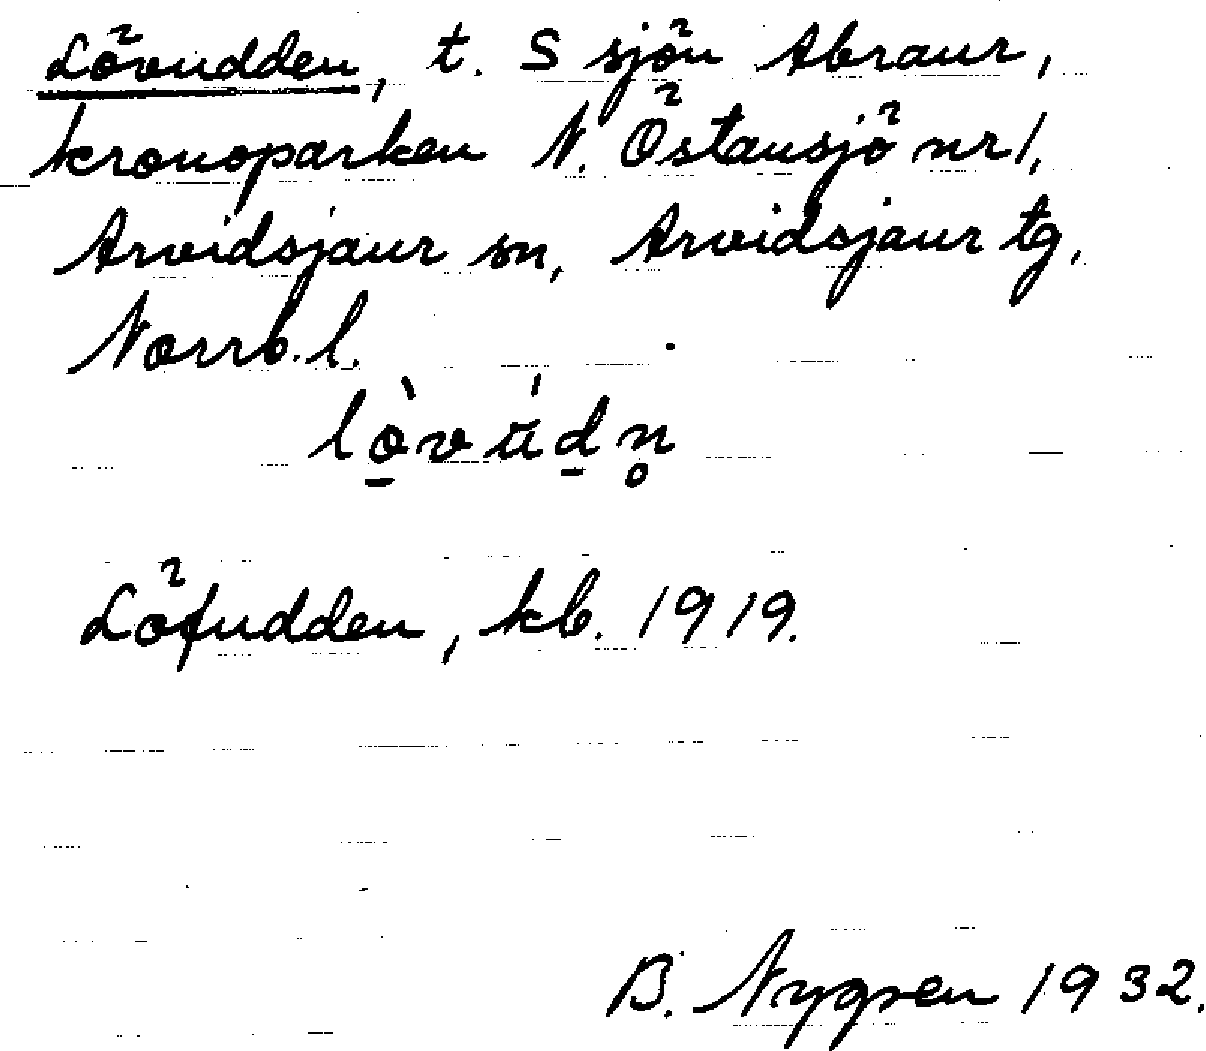 Lövudden, t. S sjön Abraur,
kronoparken N. Östansjö nr 1,
Arvidsjaur sn, Arvidsjaur tg,
Norrb. l.
lò̱vu̇́d̠n̥
Löfudden, kb. 1919.
B. Nygren 1932.